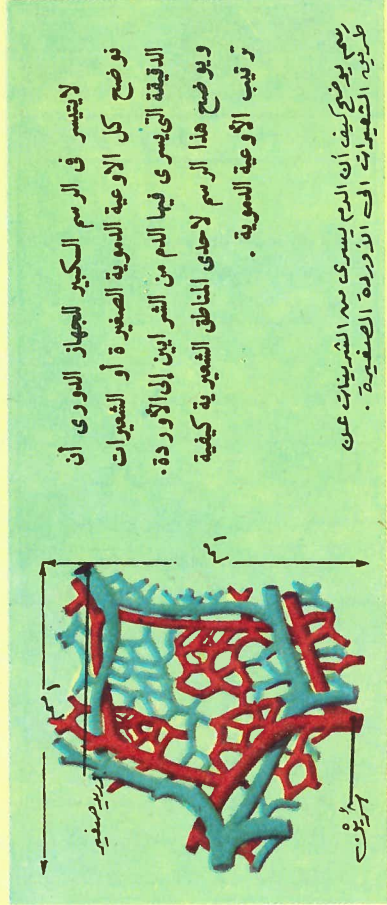 لايتيسر فى الرسم الكبير للجهاز الدورى أن
نوضح كل الاوعية الدموية الصغيرة أو الشعيرات
الدقيقة التى يسرى فيها الدم من الشرايين إلى الأوردة.
ويوضح هذا الرسم لاحدى المناطق الشعيرية كيفية
ترتيب الأوعية الدموية .
رسم يوضح كيف أن الدم يسرى من الشريينات عن
طريق الشعيرات الى الأوردة الصغيرة .
١ مم
١ مم
وريد صغير
شريين